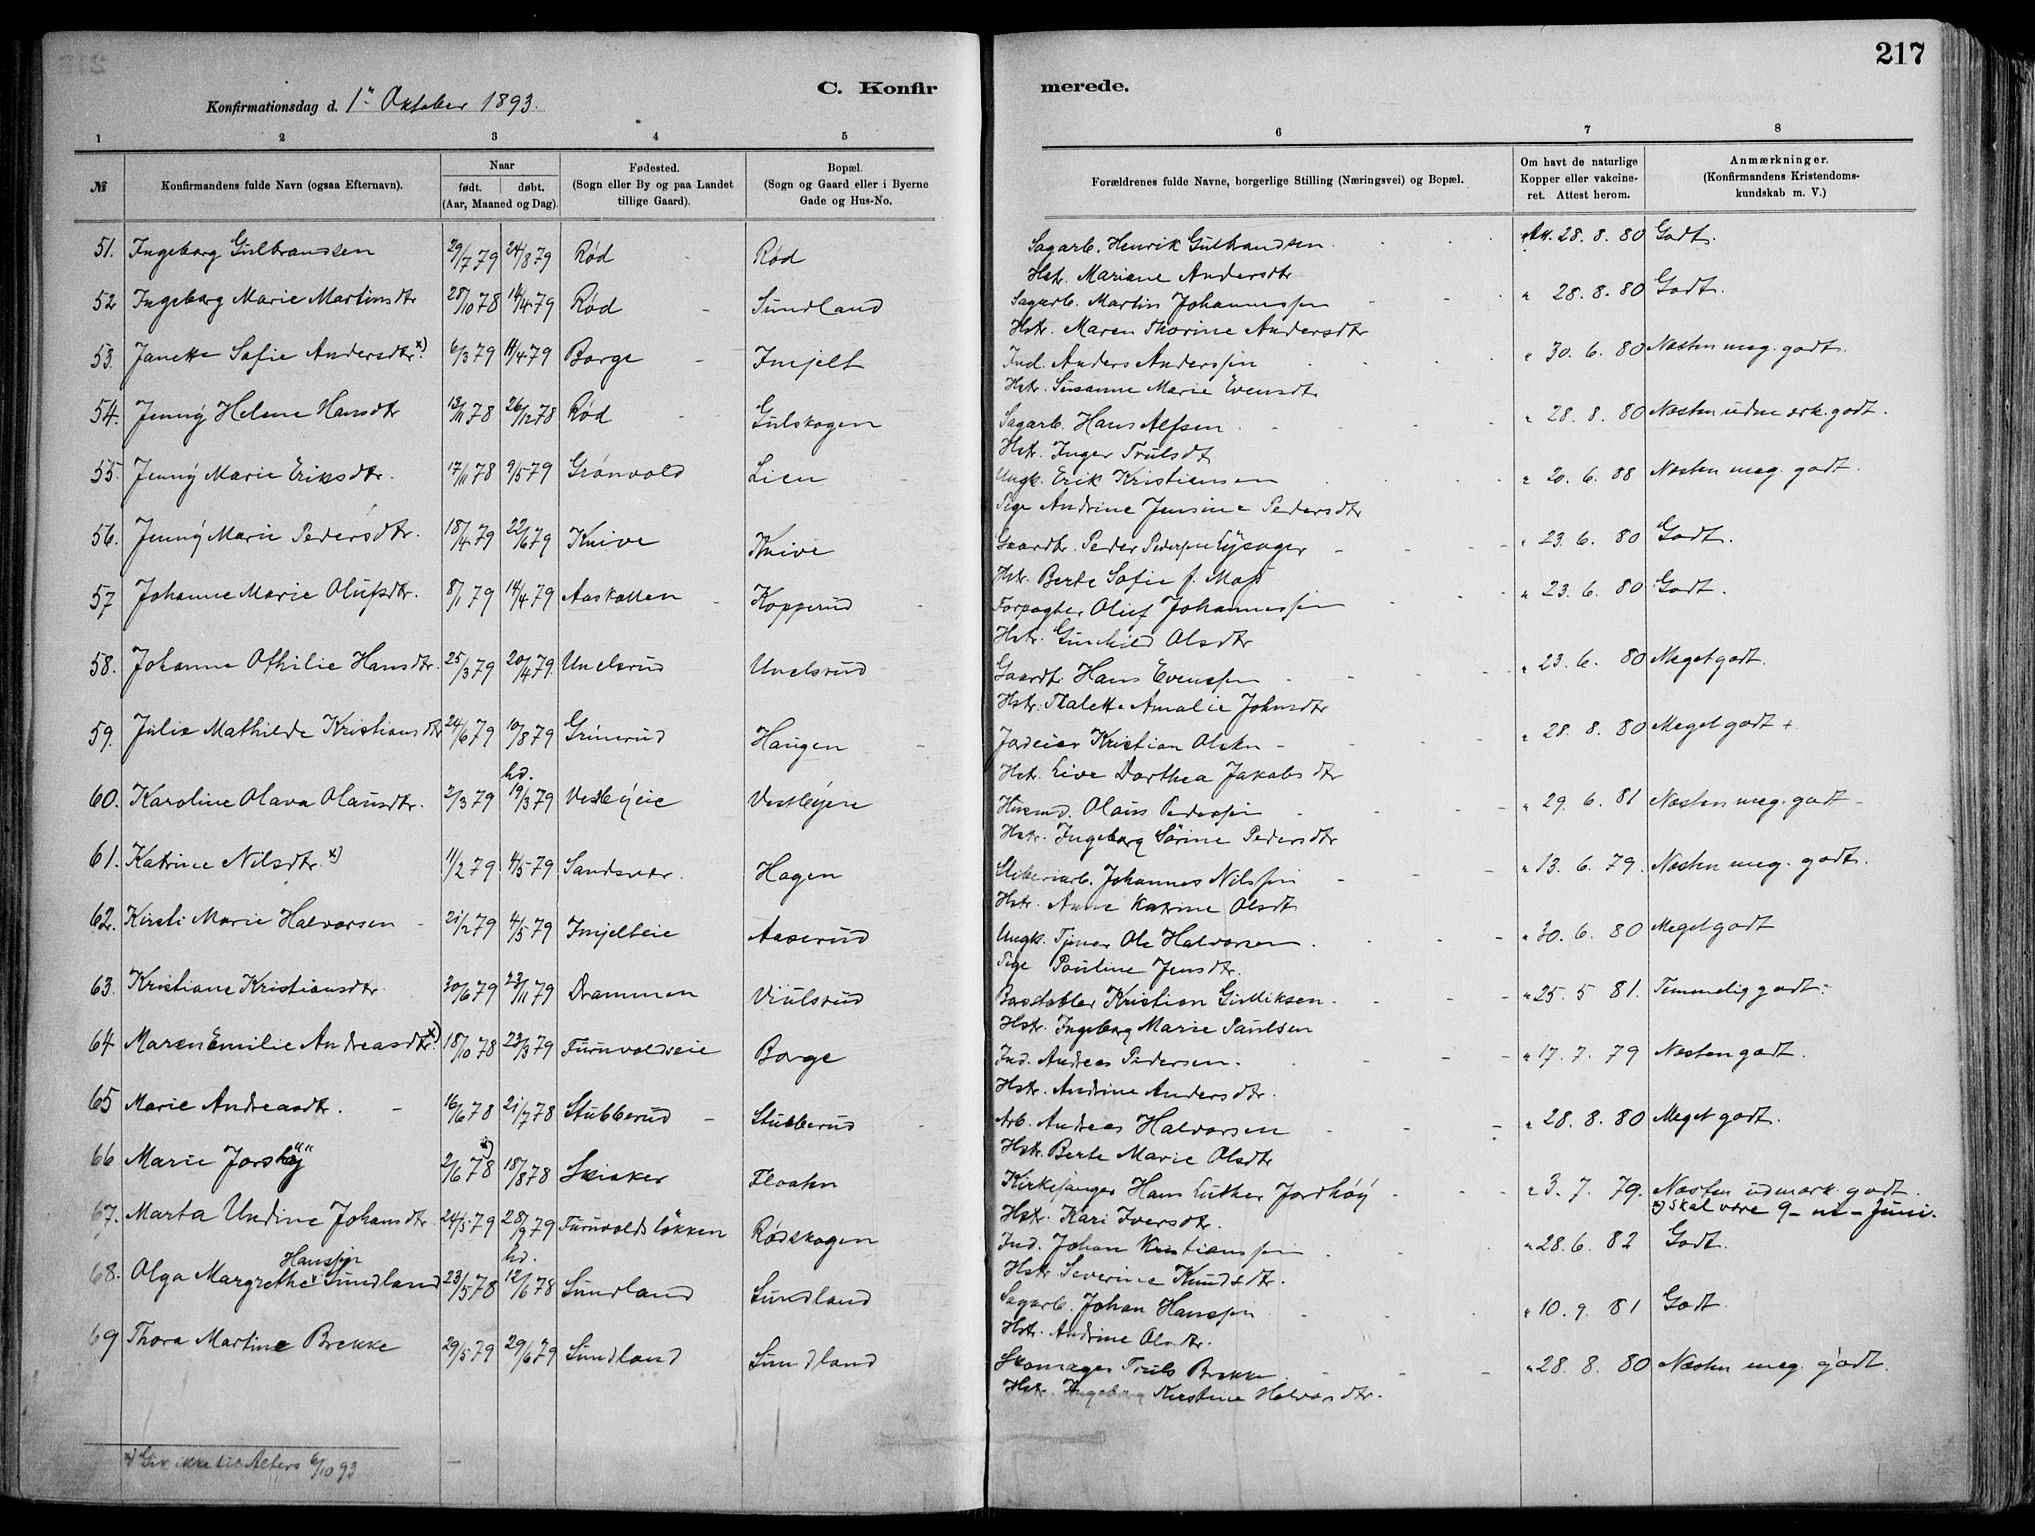 217
C. Konfirmerede.
Konfirmationsdag d. 1ste Oktober 1893.
1 2 3 4 5 6 7 8
№ | Konfirmandens fulde Navn (ogsaa Efternavn). | Naar født. døbt. (Aar, Maaned og Dag). | Fødested. (Sogn eller By og paa Landet tillige Gaard). | Bopæl. (Sogn og Gaard eller i Byerne Gade og Hus-No. | Forældrenes fulde Navne, borgerlige Stilling (Næringsvei) og Bopæl. | Om havt de naturlige Kopper eller vakcineret. Attest herom. | Anmærkninger. (Konfirmandens Kristendomskundskab m. V.)
51. Ingeborg Gulbransen 29/7 79 24/8 79 Rød Rød Sagarb. Henrik Gulbrandsen Att. 28.8.80 Godt.
Hstr. Mariane Andersdtr
52 Ingeborg Marie Martinsdtr 28/10 78 14/4 79 Rød Sundland Sagarb. Martin Johannessen " 28.8.80 Godt.
Hstr. Maren Thorine Andersdtr
53. Janette Sofie Andersdtr. x) 6/3 79 14/4 79 Borge Imjelt Ind. Anders Anderssen " 30.6.80 Næsten meg. godt.
Hstr. Susanne Marie Evensdtr
54. Jenny Helene Hansdtr 13/11 78 26/12 78 Rød Gulskogen Sagarb. Hans Alfsen " 28.8.80 Næsten udmærk. godt.
Hstr. Inger Trulsdtr
55. Jenny Marie Eriksdtr. 17/11 78 9/5 79 Grønvold Lien Ungk. Erik Kristiansen " 20.6.88 Næsten meg. godt.
Pige Andrine Jensine Pedersdtr
56. Jenny Marie Pedersdtr. 18/4 79 22/6 79 Knive Knive Gaardbr. Peder Pedersen Lysager " 23.6.80 Godt.
Hstr. Berte Sofie f. Moss
57 Johanne Marie Olufsdtr. 8/1 79 14/4 79 Aaskollen Kopperud Forpagter Oluf Johannessen " 23.6.80 Godt.
Hstr. Gunhild Olsdtr
58. Johanne Othilie Hansdtr. 25/3 79 20/4 79 Unelsrud Unelsrud Gaardbr. Hans Evenssen " 23.6.80 Meget godt.
Hstr. Thalette Amalie Johnsdtr
59. Julie Mathilde Kristiansdtr 24/6 79 10/8 79 Grinerud Haugen Jordeier Kristian Olsen " 28.8.80 Meget godt +
Hstr. Live Dorthea Jakobsdtr
60. Karoline Olava Olausdtr. 2/3 79 hd. 19/3 79 Vestbyeie Vestbyeie Husmd. Olaus Pederssen " 29.6.81 Næsten meg. godt
Hstr. Ingeborg Sørine Pedersdtr
61. Katrine Nilsdtr. x) 11/2 79 4/5 79 Sandsvær Hagen Sliberiarb. Johannes Nilssen " 13.6.79. Næsten meg. godt.
Hstr. Anne Katrine Olsdtr
62. Kirsti Marie Halvorsen 21/2 79 4/5 79 Imjelteie Aaserud Ungk. Tjener Ole Halvorsen " 30.6.80 Meget godt
Pige Pauline Jensdtr.
63. Kristiane Kristiansdtr. 30/6 79 23/11 79 Drammen Viulsrud Kristian Gulliksen " 25.5 81. Temmelig godt.
Hstr. Ingeborg Marie Paulsen
64 Maren Emilie Andreasdtr. x) 18/10 78 23/3 79 Furuvoldseie Borge Ind. Andreas Pedersen. " 17.7.79 Næsten godt.
Hstr. Andrine Andersdtr.
65 Marie Andreasdtr. 16/6 78 21/7 78 Stubberud Stubberud Arb. Andreas Halvorsen " 28.8.80 Meget godt.
Hstr. Berte Marie Olsdtr
66 Marie Jorshøy 2/6 78 18/8 78 Skiaker Floaten Kirkesanger Hans Luther Jordhøy " 3.7.79. Næsten udmærk. godt.
Hstr. Kari Iversdtr. x) skal være 9-ni-Juni.
67. Marta Undine Johansdtr. 24/5 79 28/9 79 Furuvoldsløkken Rødskogen Ind. Johan Kristianssen " 28.6.82 Godt.
Hstr Severine Knudsdtr.
68. Olga Margrethe Hanssen Sundland 23/5 78 hd. 12/6 78 Sundland Sundland Sagarb. Johan Hanssen " 10.9.81 Godt.
Hstr. Andrine Olsdtr.
69 Thora Martine Brekke 29/5 79 29/6 79 Sundland Sundland Skomager Truls Brekke " 28.8.80 Næsten meg. godt.
Hstr. Ingeborg Kirstine Halvorsdtr.
x) Gik ikke til Alters 6/10 93